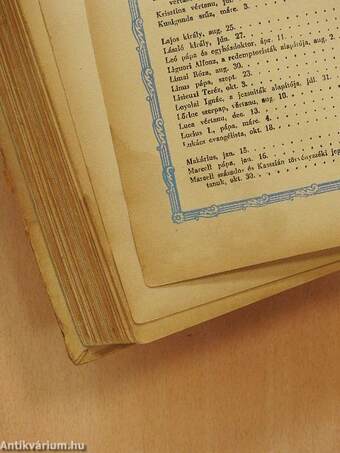 Krisztina vértanu, jul.
Kunigunda szűz, márc. 3.
Lajos király, aug. 25.
László király, jún. 27.
Leó pápa és egyházdoktor, ápr. 11.
Liguori Alfonz, a redemptoristák alapítója, aug. 2.
Limai Róza, aug. 30.
Linus pápa, szept. 23.
Lisieuxi Teréz, okt. 3.
Loyolai Ignác, a jezsuiták alapítója, júl. 31.
Lőrinc szerpap, vértanu, aug. 10.
Luca vértanu, dec. 13.
Lucius I., pápa, márc. 4.
Lukács evangélista, okt. 18.
Makárius, jan. 15.
Marcell pápa, jan. 16.
Marcell százados és Kasszián törvényszéki jeg
tanuk, okt. 30.
Antikvárium.hu